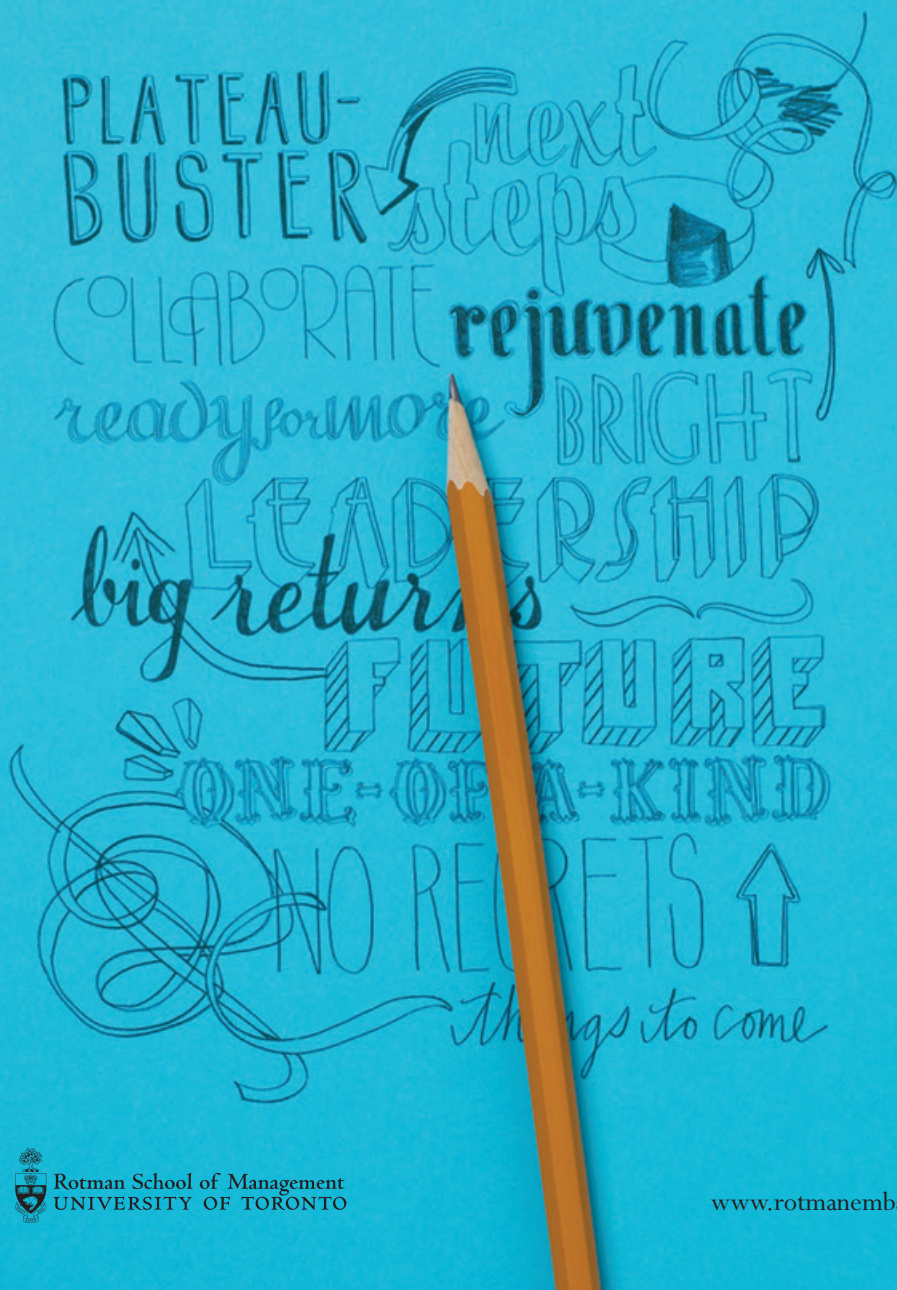 PLATEAU-
BUSTER
next
steps
COLLABORATE
rejuvenate
ready for more
BRIGHT
LEADERSHIP
big returns
FUTURE
ONE-OF-A-KIND
NO REGRETS
things to come
Rotman School of Management
UNIVERSITY OF TORONTO
www.rotmanemba